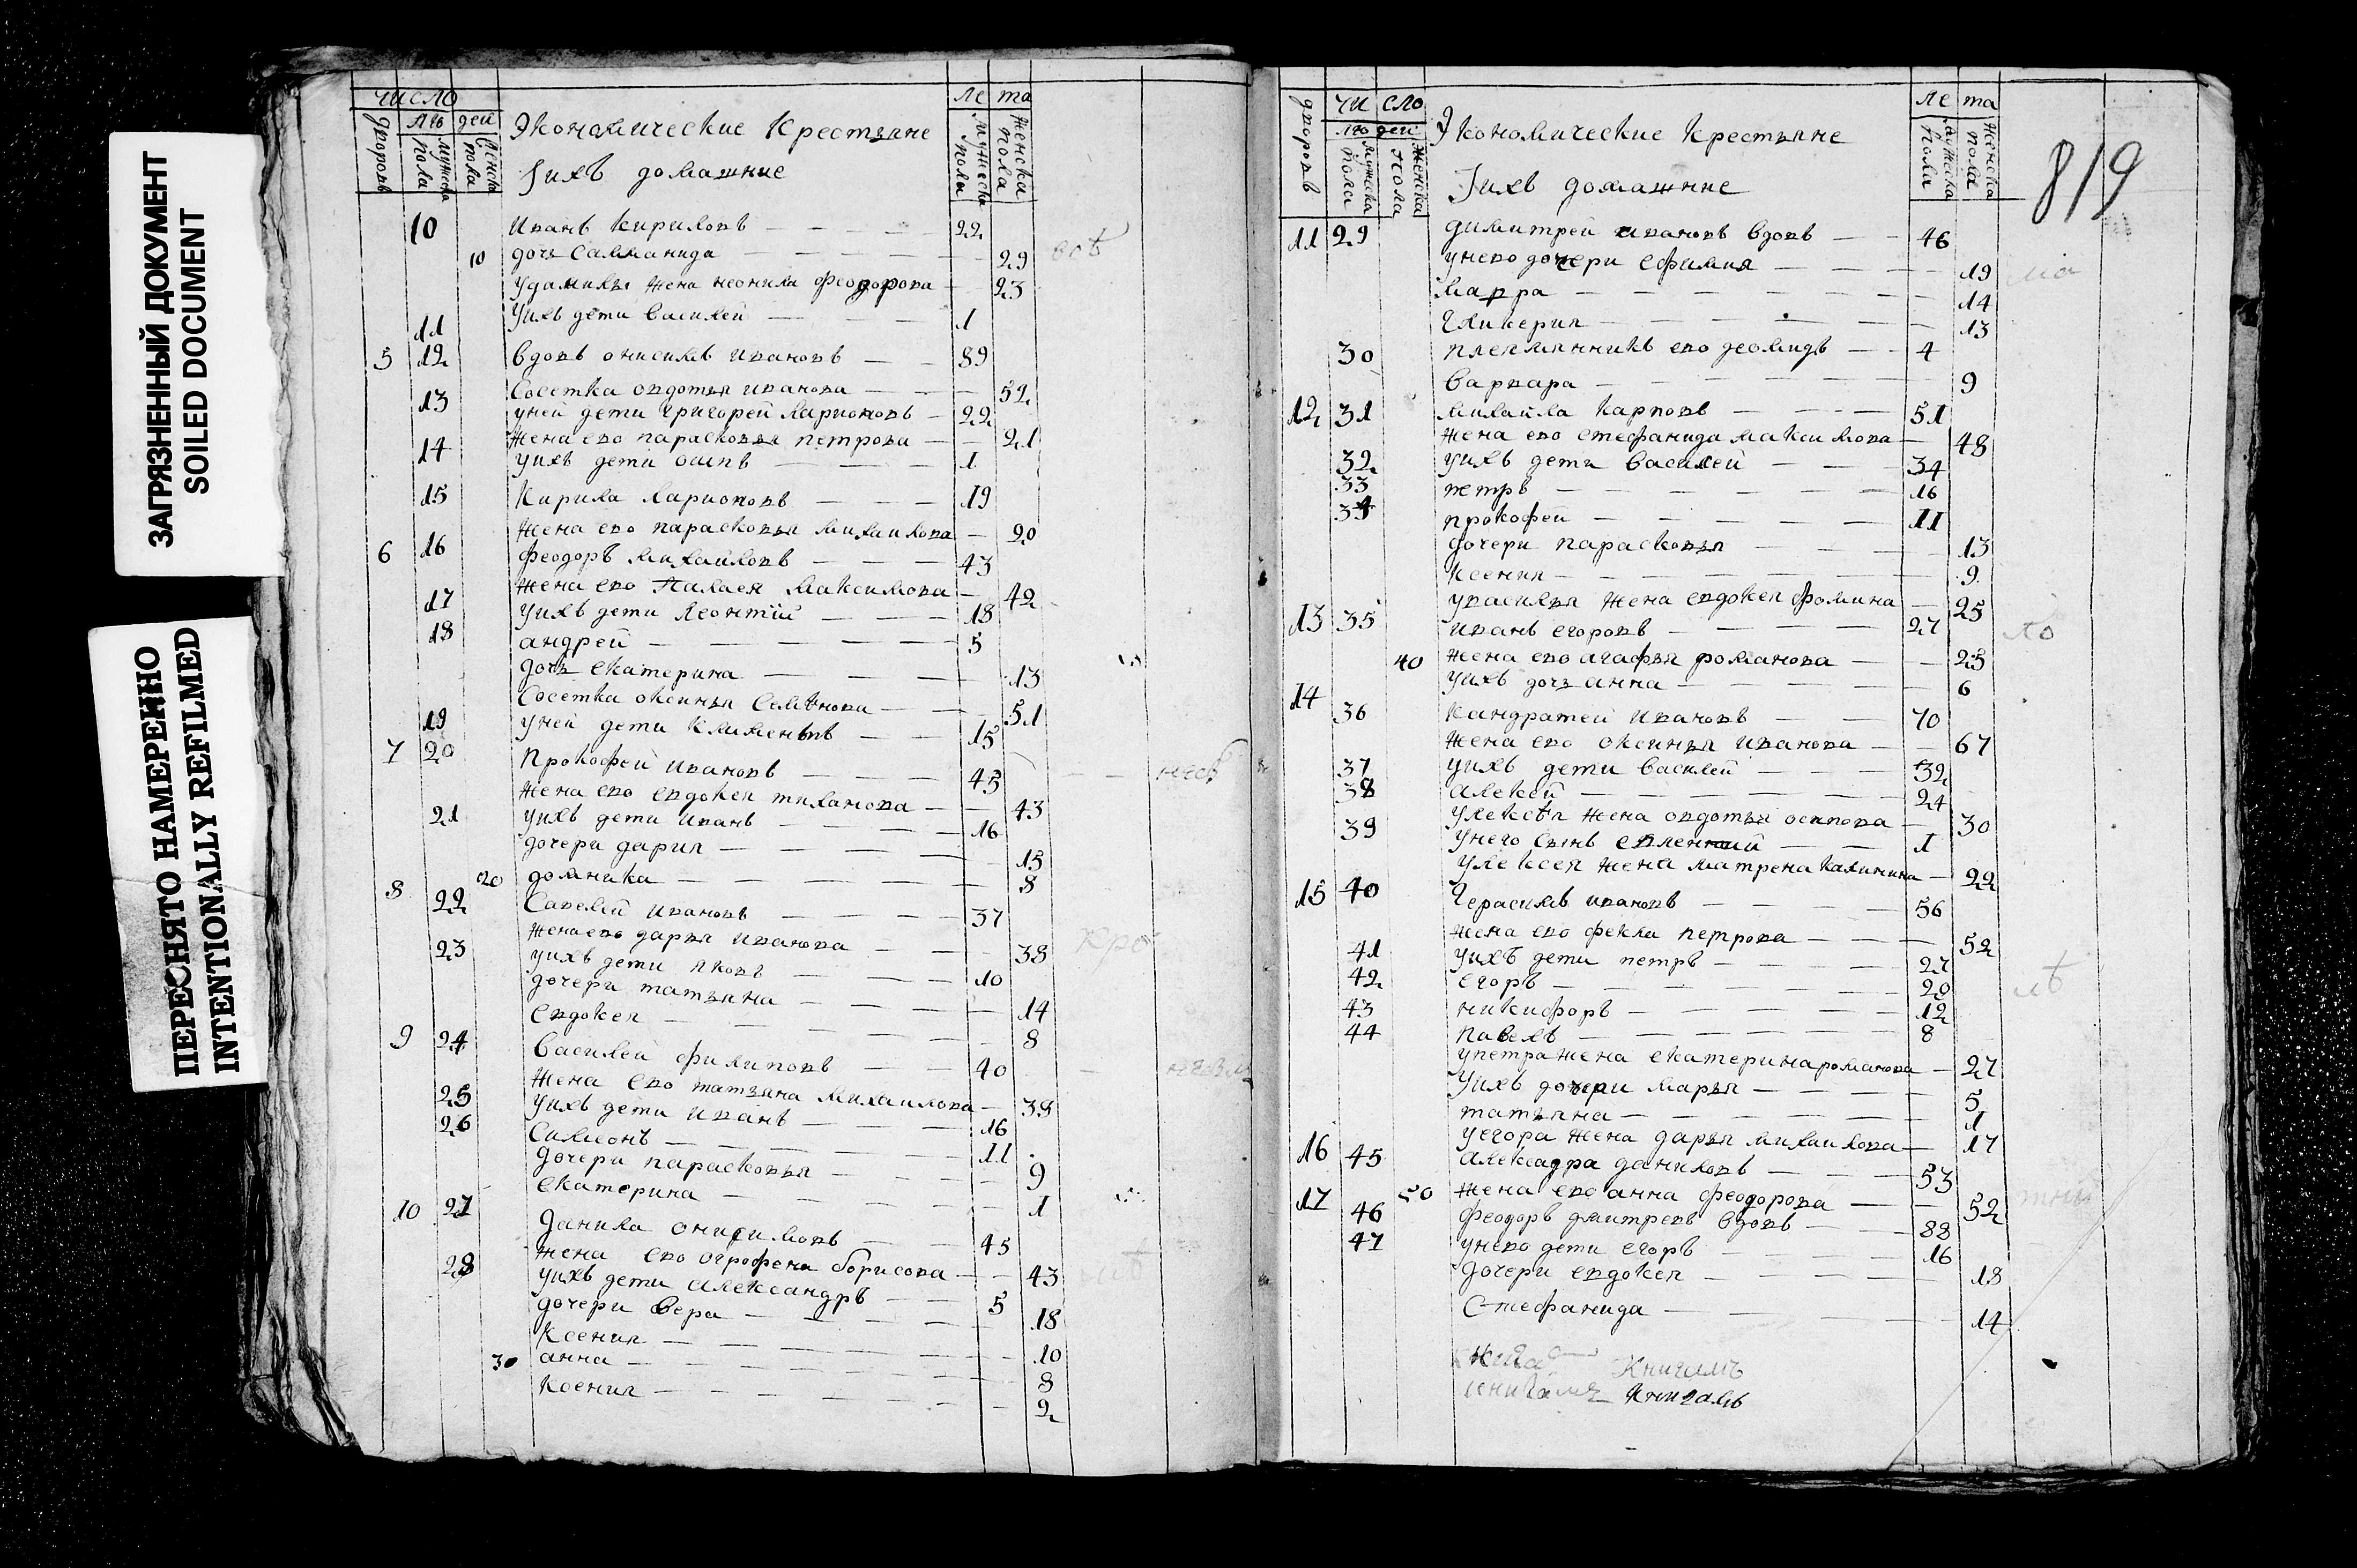 ЗАГРЯЗНЕННЫЙ ДОКУМЕНТ
SOILED DOCUMENT
ПЕРЕСНЯТО НАМЕРЕННО
INTENTIONALLY REFILMED
число
лю дей
дворовъ
мужеска пола
женска пола
Экономические Крестьяне
Iихъ домашние
ле та
мужеска пола
женска пола
10 Иванъ Кириловъ 22
10 дочь Саламанида 29
Удамилы жена неонила феодорова 23
11 Уихъ дети Василей 1
5 12 вдовъ онисимъ Ивановъ 89
Сосетка овдотья иванова 52
13 Уней дети григорей Ларионовъ 22
жена ево парасковья петрова 21
14 Уихъ дети осипъ 1
15 Кирила Ларионовъ 19
жена ево парасковья михаилова 20
6 16 феодоръ михаиловъ 43
жена ево Пилагея Максимова 42
17 Уихъ дети Леонтiй 18
18 андрей 5
дочь екатерина 13
Сосетка оксинья Семѣнова 51
19 Уней дети Клименьтъ 15
7 20 Прокофей ивановъ 45
жена ево евдокея тиханова 43
21 Уихъ дети иванъ 16
дочери дария 15
20 домника 8
8 22 Савелiй ивановъ 37
жена ево дарья иванова 38
23 Уихъ дети яковъ 10
дочери татьяна 14
Евдокея 8
9 24 Василей филиповъ 40
жена ево татьяна михаилова 38
25 Уихъ дети иванъ 16
26 Симионъ 11
дочери парасковья 9
екатерина 1
10 27 Данила онисимовъ 45
жена ево огрофена борисова 43
28 Уихъ дети александръ 5
дочери вера 18
Ксения 10
30 анна 8
Ксения 2
чи сло
лю дей
дворовъ
мужеска пола
женска пола
Экономические Крестьяне
Iихъ домашние
ле та
мужеска пола
женска пола
819
11 29 димитрей ивановъ вдовъ 46
Унево дочери ефимия 19
марра 14
гликерия 13
30 племянникъ ево деомидъ 4
варвара 9
12 31 михайла Карповъ 51
жена ево стефанида максимова 48
32 Уихъ дети василей 34
33 петръ 16
34 прокофей 11
дочери парасковья 13
ксения 9
Увасилья жена евдокея фомина 25
13 35 иванъ егоровъ 27
40 жена ево агафья романова 25
Уихъ дочь анна 6
14 36 Кандратей ивановъ 70
жена ево оксинья иванова 67
37 Уихъ дети василей 32
38 алексей 24
жена овдотья осипова 30
39 Унего сынъ 1
Улексея жена матрена калинина 22
15 40 герасимъ ивановъ 56
жена ево фекла петрова 52
41 Уихъ дети петръ 27
42 егоръ 20
43 никифоръ 12
44 павелъ 8
Упетра жена екатерина романова 27
Уихъ дочери марья 5
татьяна 1
Уегора жена дарья михаилова 17
16 45 александра даниловъ 53
50 жена ево анна феодорова 52
17 46 феодоръ дмитревъ вдовъ 88
47 Унево дети егоръ 16
дочери евдокея 18
Стефанида 14
книга Книгамъ
книгамъ Книгамъ